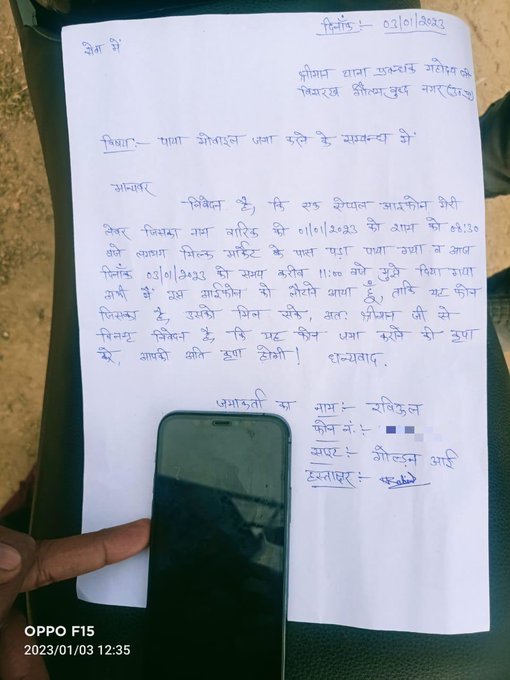 दिनाँक :- 03/01/2023
सेवा में
श्रीमान थाना प्रबन्धक महोदय जी
बिसरख गौतम बुद्ध नगर (उ०प्र०)
विषय :- पाया मोबाइल जमा करने के सम्बन्ध में
मान्यवर
निवेदन है, कि एक एप्पल आईफोन मेरी
लेबर जिसका नाम वारिक को 01/01/2023 को शाम को 08:30
बजे लगभग मिल्क मार्केट के पास पड़ा पाया गया व आज
दिनाँक 03/01/2023 को समय करीब 11:00 बजे मुझे दिया गया
मैं इस आईफोन को लौटाने आया हूँ, ताकि यह फोन
जिसका है, उसको मिल सके, अतः श्रीमान जी से
विनम्र निवेदन है, कि यह फोन जमा कराने की कृपा
करे, आपकी अति कृपा होगी ! धन्यवाद.
जमाकर्ता का नाम :- रविकुल
फोन नं. :-
:- गोल्डन आई
हस्ताक्षर :-
OPPO F15
2023/01/03 12:35